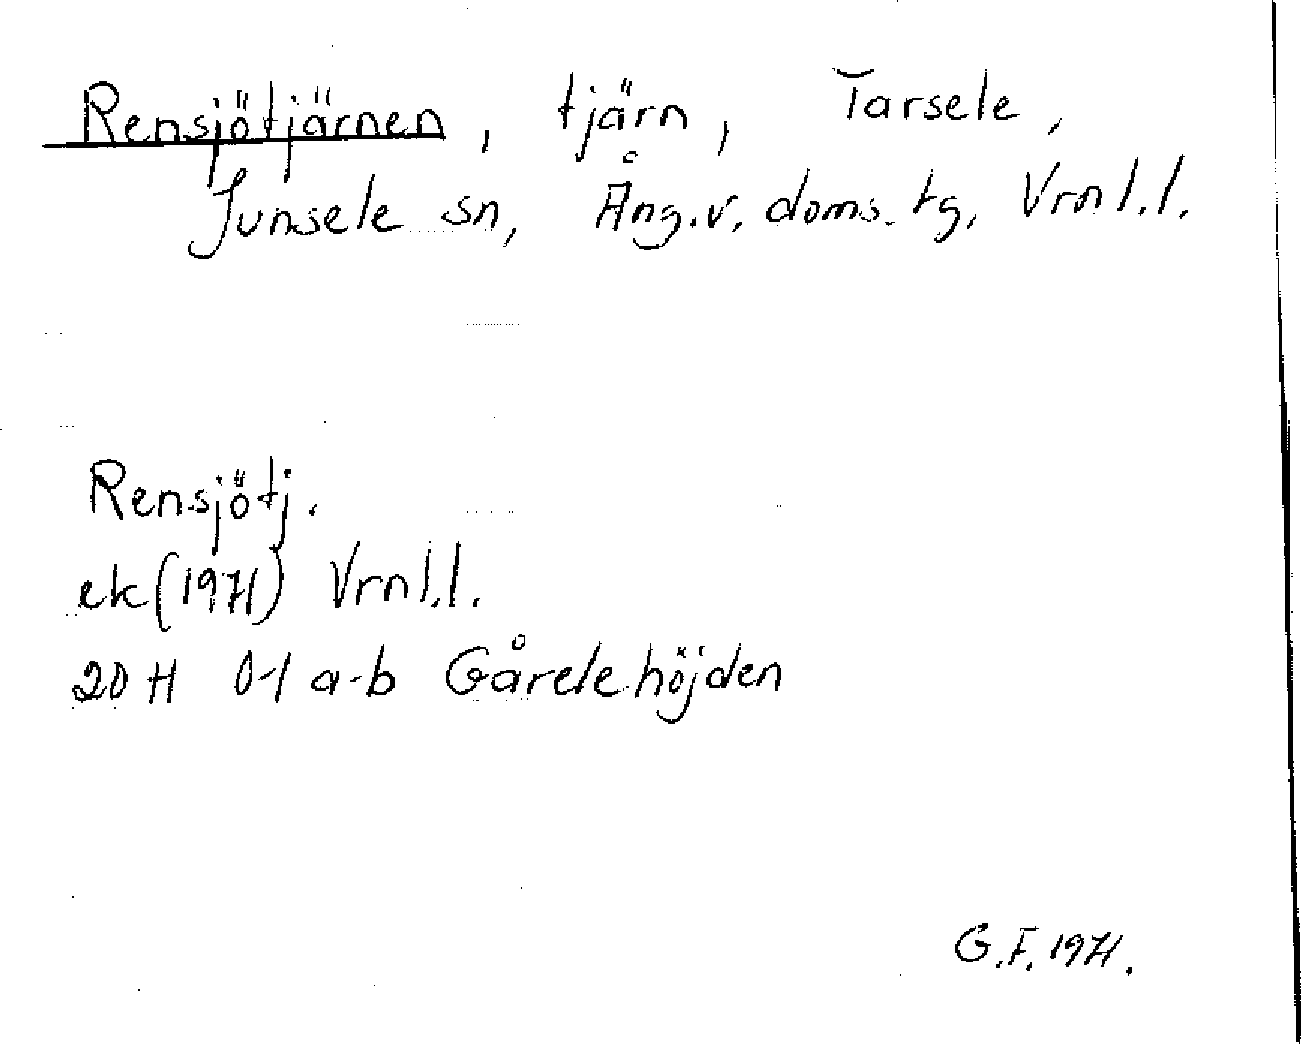 Rensjötjärnen, tjärn, Tarsele,
Junsele sn, Ång.v. doms.tg, Vrnl.l.
Rensjötj.
ek (1971) Vrnl.l.
20 H 0-1 a-b Gårelehöjden
G.F. 1971.